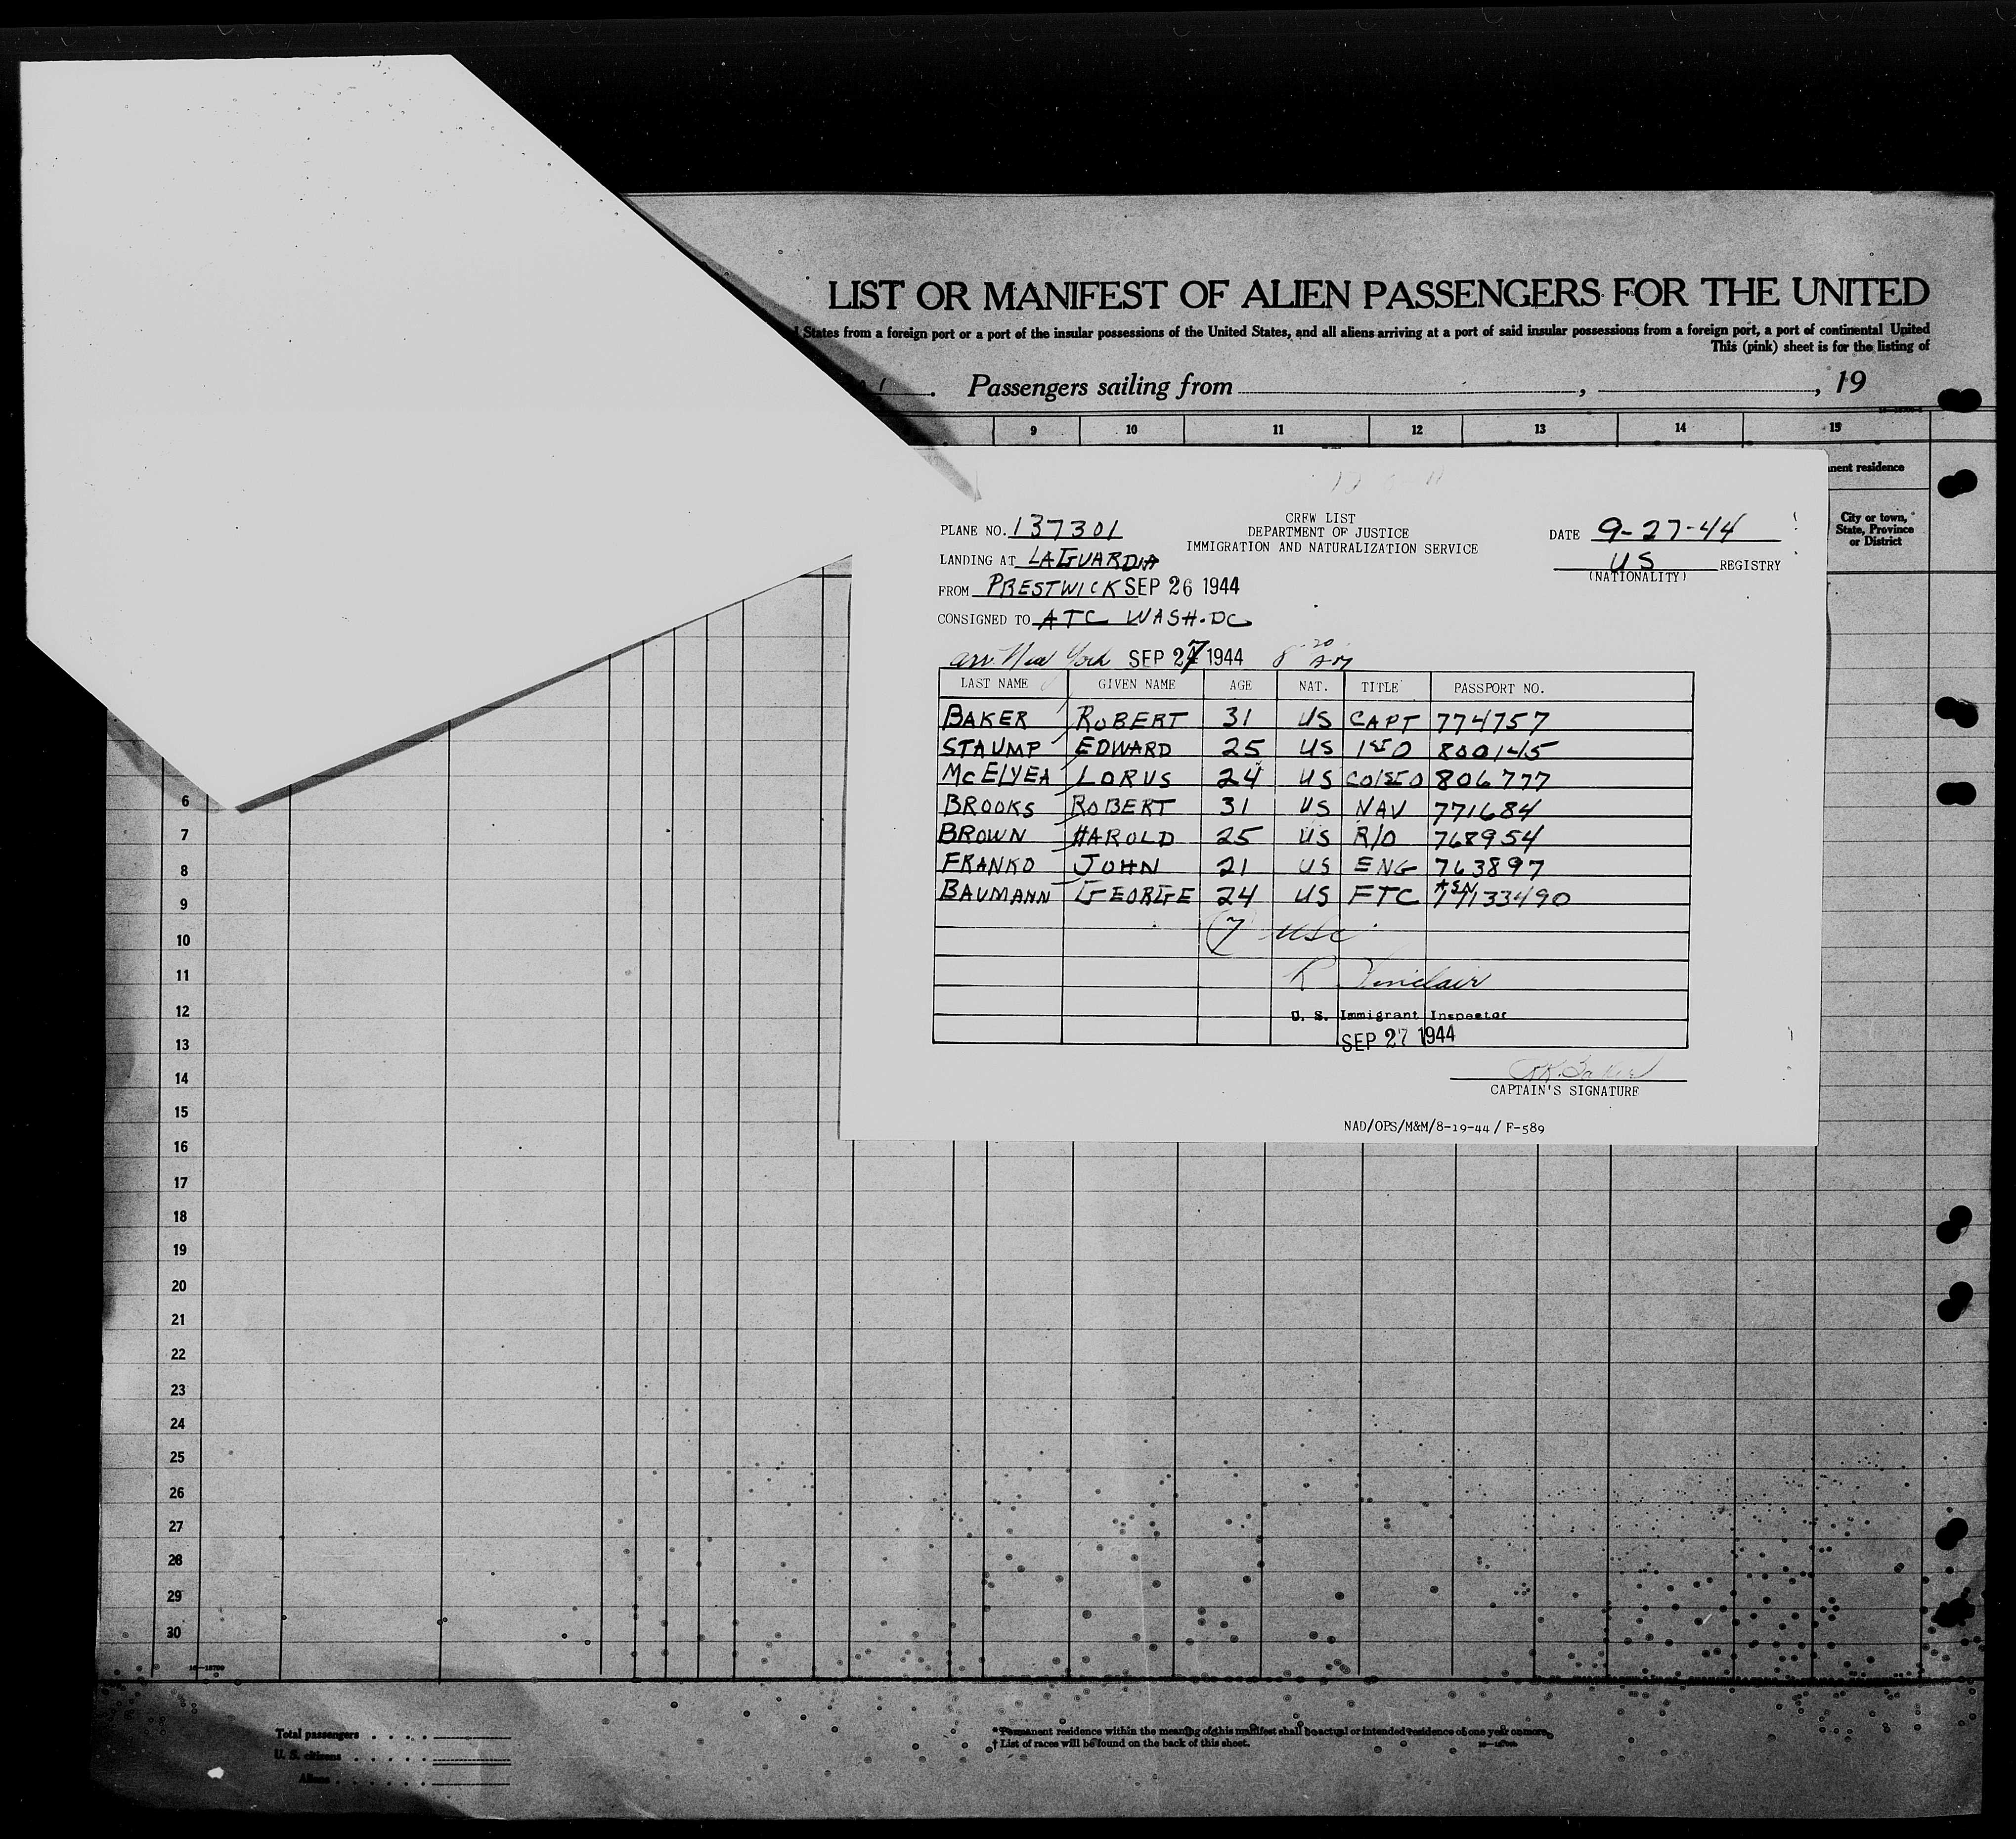 LIST OR MANIFEST OF ALIEN PASSENGERS FOR THE UNITED
States from a foreign port or a port of the insular possessions of the United States, and all aliens arriving at a port of said insular possessions from a foreign port, a port of continental United
This (pink) sheet is for the listing of
Passengers sailing from , , 19
9 10 11 12 13 14 15
nent residence
City or town,
State, Province
or District
CREW LIST
DEPARTMENT OF JUSTICE
IMMIGRATION AND NATURALIZATION SERVICE
PLANE NO. 137301
LANDING AT LAGUARDIA
FROM PRESTWICK SEP 26 1944
CONSIGNED TO ATC WASH. DC
DATE 9-27-44
US REGISTRY
(NATIONALITY)
arr. New York SEP 27 1944 8 20 AM
LAST NAME GIVEN NAME AGE NAT. TITLE PASSPORT NO.
BAKER ROBERT 31 US CAPT 774757
STAUMP EDWARD 25 US 1STO 800145
McELYEA LORUS 24 US CO/STO 806777
BROOKS ROBERT 31 US NAV 771684
BROWN HAROLD 25 US R/O 768954
FRANKO JOHN 21 US ENG 763897
BAUMANN GEORGE 24 US FTC ASN 17133490
7 USC
R Sinclair
U. S. Immigrant Inspector
SEP 27 1944
RK. Baker
CAPTAIN'S SIGNATURE
NAD/OPS/M&M/8-19-44/ F-589
6
7
8
9
10
11
12
13
14
15
16
17
18
19
20
21
22
23
24
25
26
27
28
29
30
Total passengers
U. S. citizens
Aliens
*Permanent residence within the meaning of this manifest shall be actual or intended residence of one year or more.
† List of races will be found on the back of this sheet.